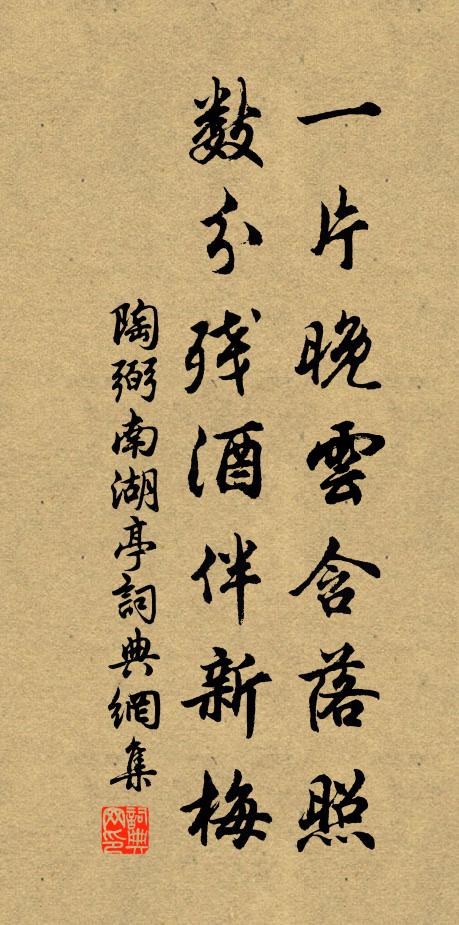 一片晚雲含落照
数分残酒伴新梅
陶弼南湖亭詞典網集
詞典网印